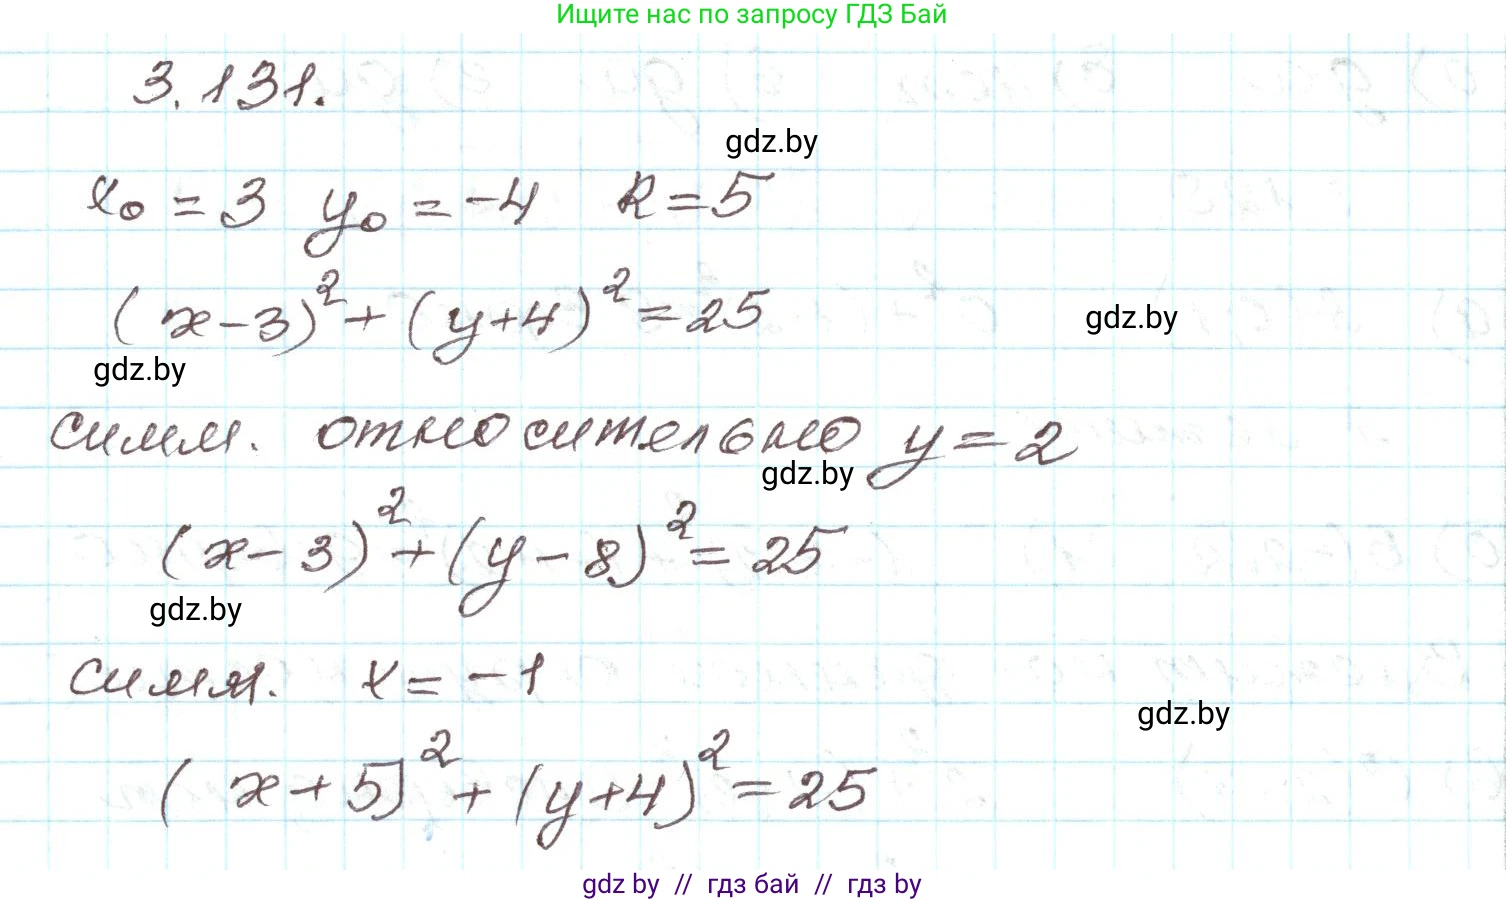 Ищите нас по запросу ГДЗ Бай
3.131.
gdz.by
x₀ = 3 y₀ = -4 R = 5
(x-3)² + (y+4)² = 25
gdz.by
gdz.by
симм. относительно y = 2
gdz.by
(x-3)² + (y-8)² = 25
gdz.by
симм. x = -1
gdz.by
(x+5)² + (y+4)² = 25
gdz by // гдз бай // гдз by